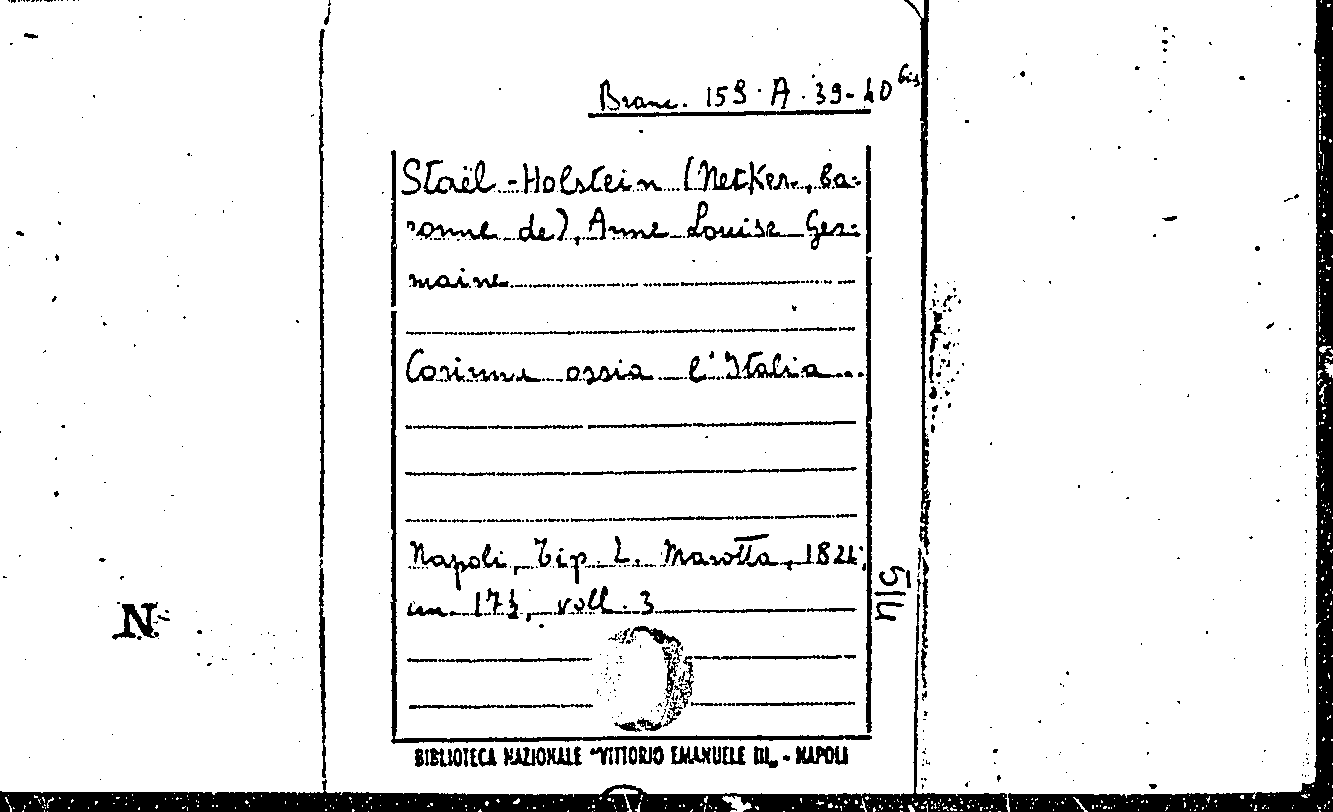 Branc. 159. A. 39-40 bis
Staël-Holstein (Necker, ba-
ronne de), Anne Louise Ger-
maine
Corinne ossia l'Italia...
Napoli, Tip. L. Marotta, 1821;
cm. 17½, voll. 3
BIBLIOTECA NAZIONALE "VITTORIO EMANUELE III" - NAPOLI
N